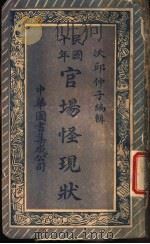 沃邱仲子編輯
民國十年
官場怪現狀
中華圖書集成公司